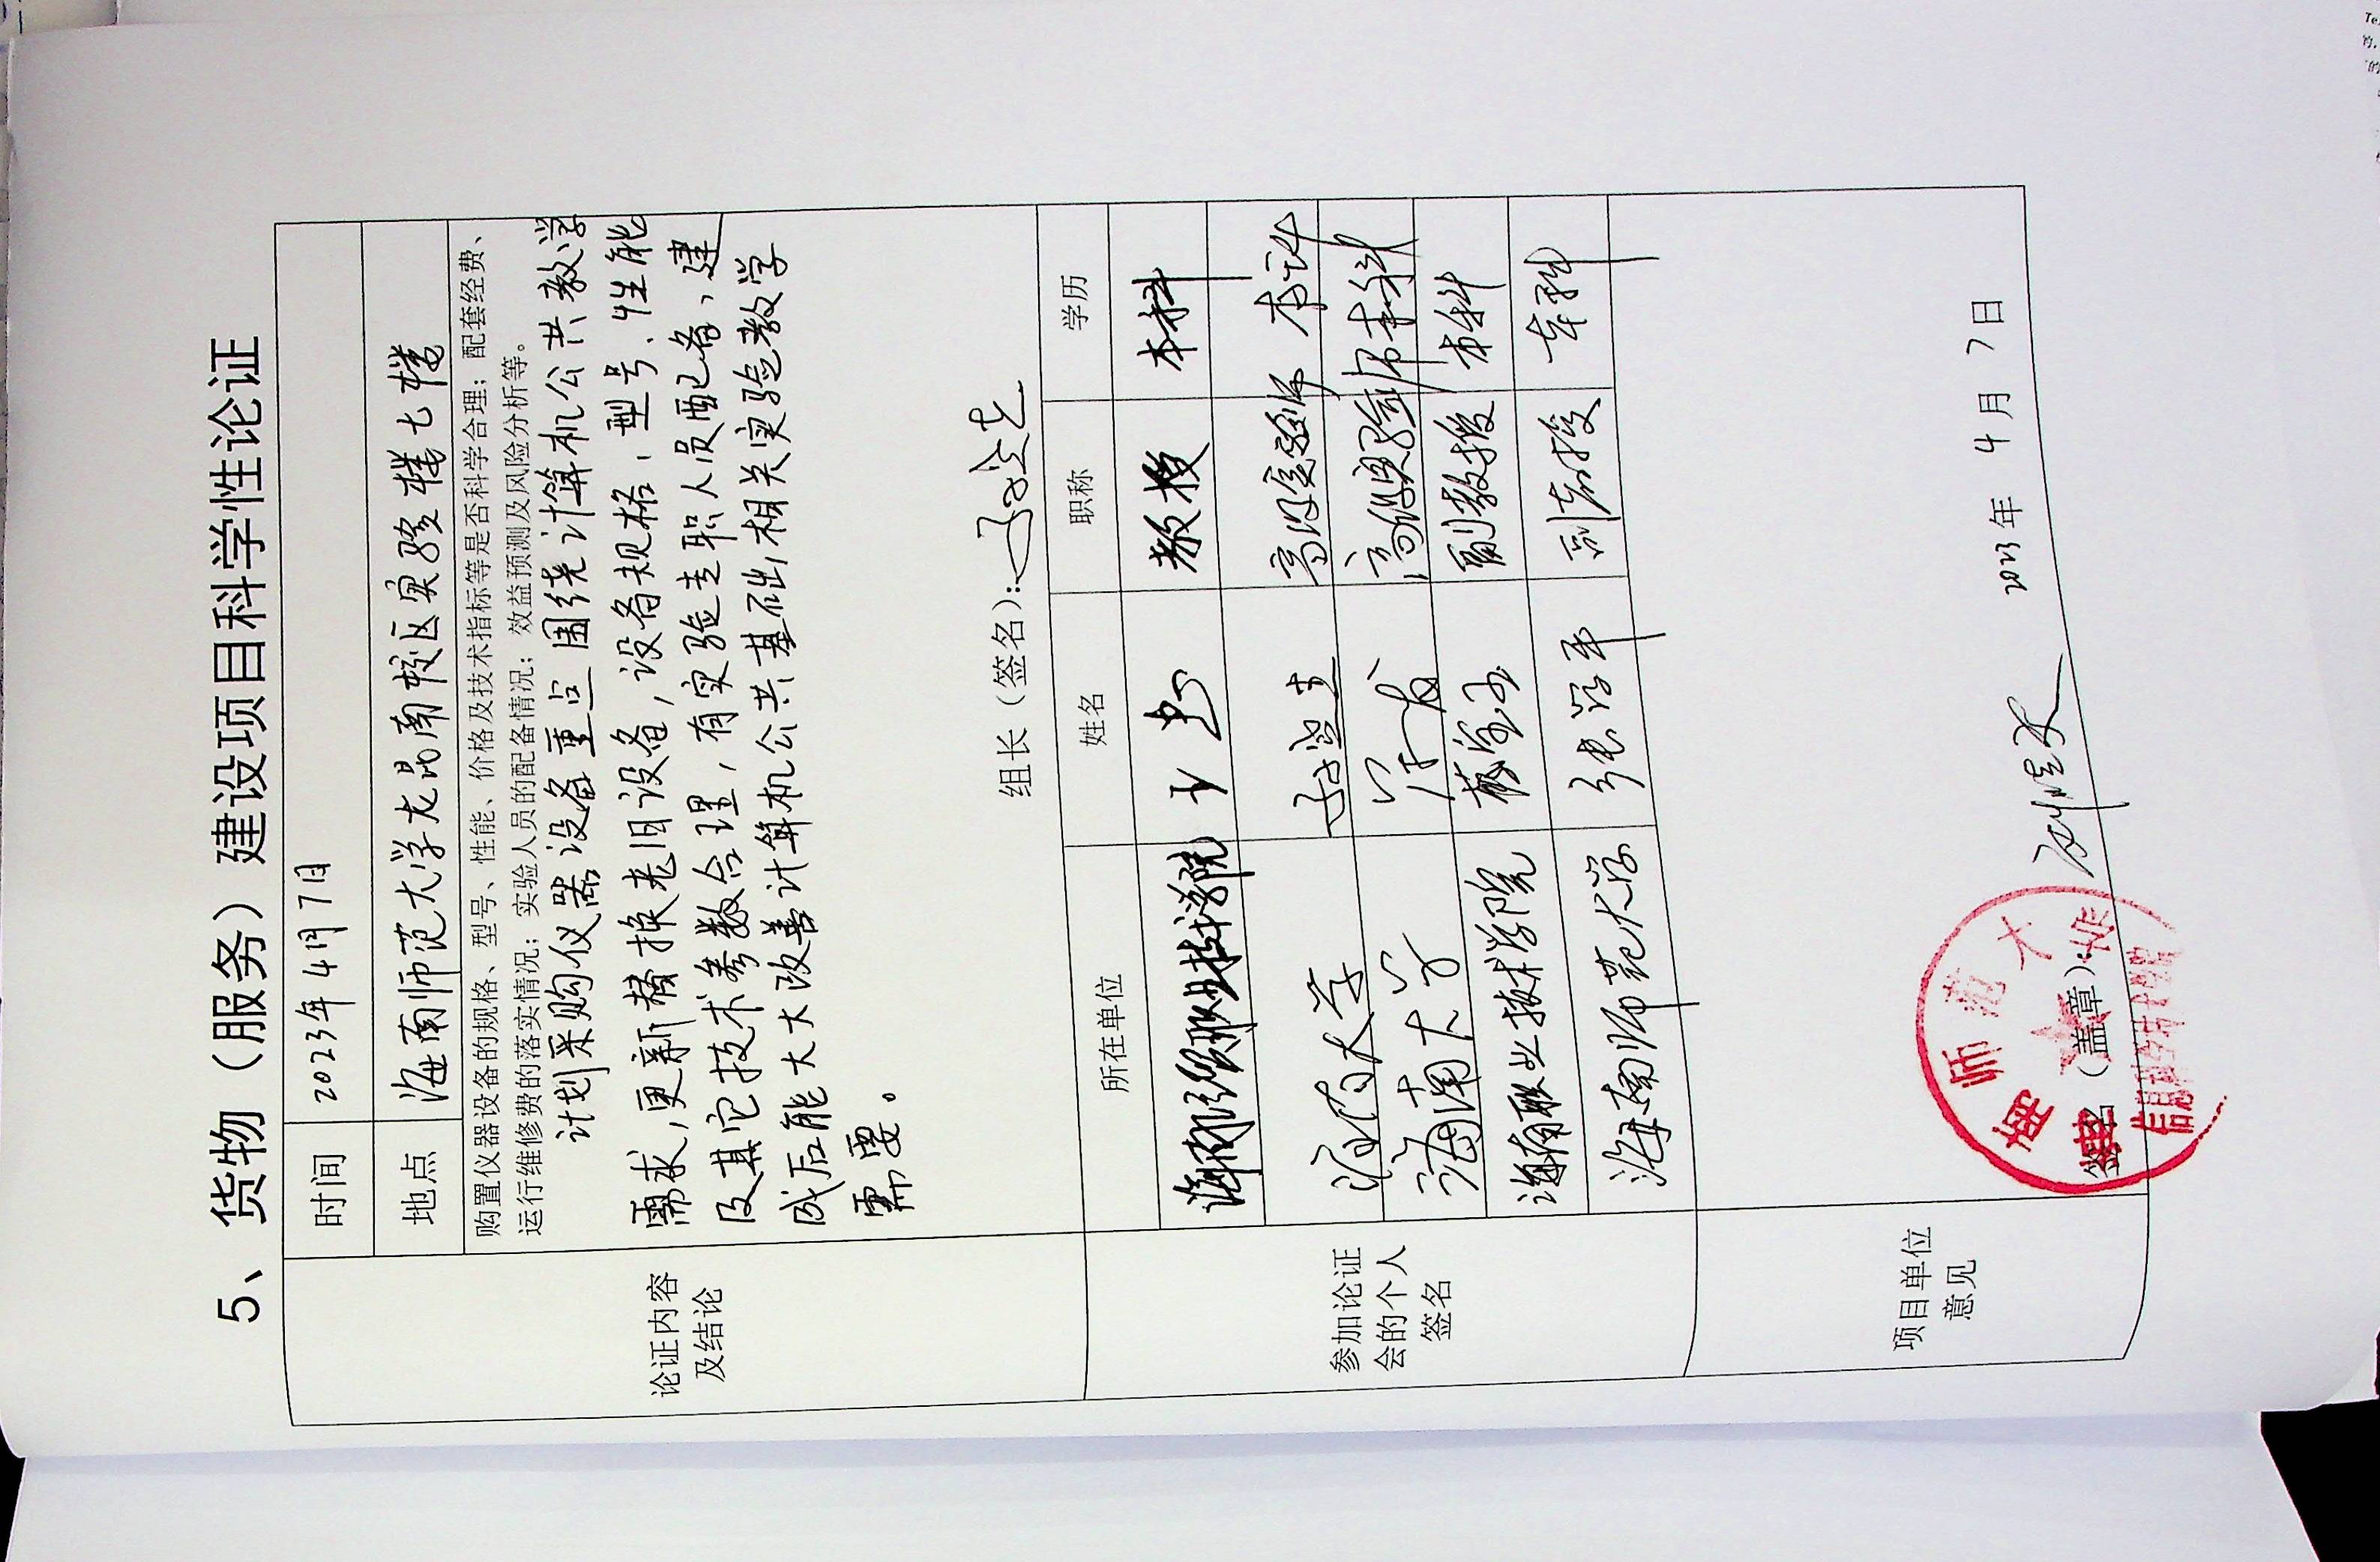 5、货物（服务）建设项目科学性论证
时间 2023年4月7日
地点 海南师范大学龙昆南校区实验楼七楼
购置仪器设备的规格、型号、性能、价格及技术指标等是否科学合理；配套经费、
运行维修费的落实情况；实验人员的配备情况；效益预测及风险分析等。
计划采购仪器设备重点围绕计算机公共教学
需求，更新替换老旧设备，设备规格、型号、性能
及其它技术参数合理，有实验专职人员配备，建
成后能大大改善计算机公共基础相关实验教学
需要。
论证内容
及结论
组长（签名）：
所在单位 姓名 职称 学历
教授 本科
海南大学 高级实验师 本科
海南大学 高级实验师 本科
海南职业技术学院 副教授 本科
海南师范大学 副教授 本科
参加论证
会的个人
签名
项目单位
意见
签名（盖章）：
2023年4月7日
信息科学技术学院